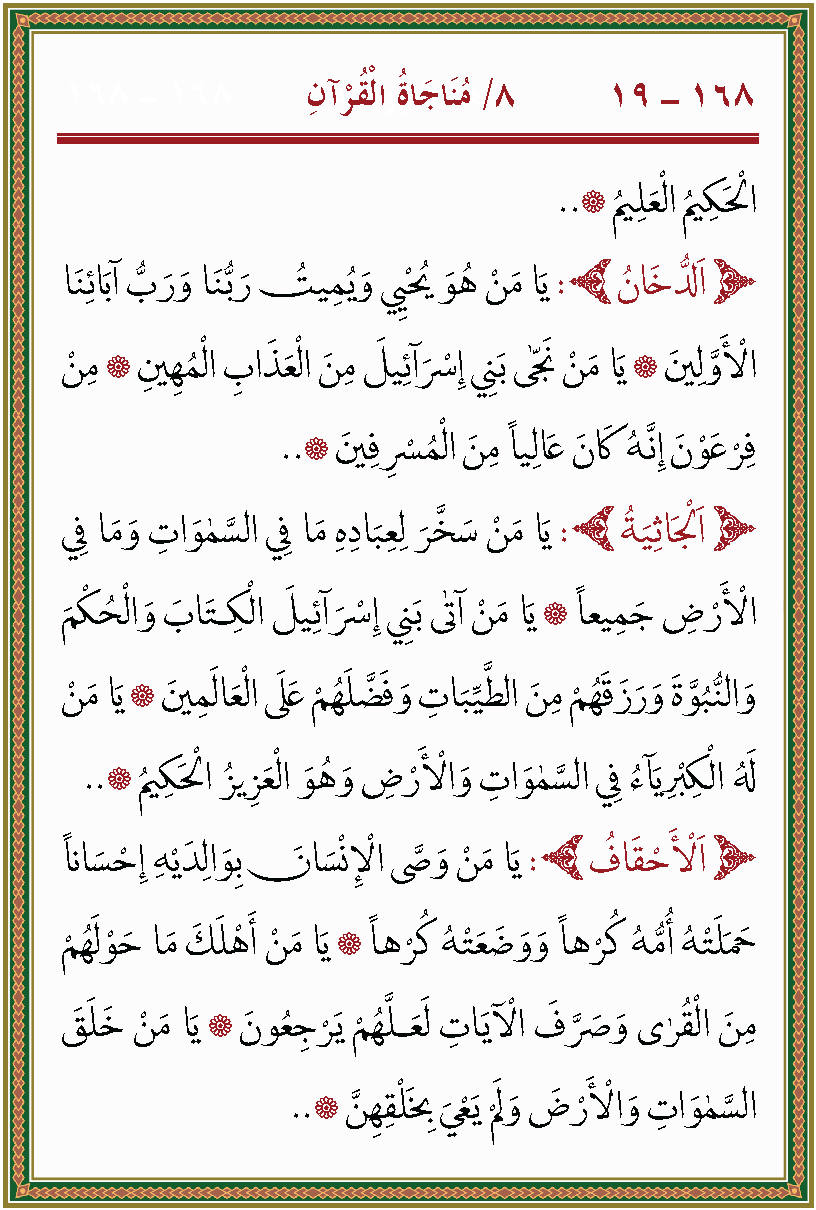 ١٦٨ – ١٩ ٨/ مُنَاجَاةُ الْقُرْآنِ ١٦٨ – ١٦٨
الْحَكِيمُ الْعَلِيمُ ۞..
﴿ اَلدُّخَانُ ﴾: يَا مَنْ هُوَ يُحْيِي وَيُمِيتُ رَبُّنَا وَرَبُّ آبَائِنَا
الْأَوَّلِينَ ۞ يَا مَنْ نَجّٰى بَنِي إِسْرَآئِيلَ مِنَ الْعَذَابِ الْمُهِينِ ۞ مِنْ
فِرْعَوْنَ إِنَّهُ كَانَ عَالِياً مِنَ الْمُسْرِفِينَ ۞..
﴿ اَلْجَاثِيَةُ ﴾: يَا مَنْ سَخَّرَ لِعِبَادِهِ مَا فِي السَّمٰوَاتِ وَمَا فِي
الْأَرْضِ جَمِيعاً ۞ يَا مَنْ آتٰى بَنِي إِسْرَآئِيلَ الْكِتَابَ وَالْحُكْمَ
وَالنُّبُوَّةَ وَرَزَقَهُمْ مِنَ الطَّيِّبَاتِ وَفَضَّلَهُمْ عَلَى الْعَالَمِينَ ۞ يَا مَنْ
لَهُ الْكِبْرِيَآءُ فِي السَّمٰوَاتِ وَالْأَرْضِ وَهُوَ الْعَزِيزُ الْحَكِيمُ ۞..
﴿ اَلْأَحْقَافُ ﴾: يَا مَنْ وَصَّى الْإِنْسَانَ بِوَالِدَيْهِ إِحْسَاناً
حَمَلَتْهُ أُمُّهُ كُرْهاً وَوَضَعَتْهُ كُرْهاً ۞ يَا مَنْ أَهْلَكَ مَا حَوْلَهُمْ
مِنَ الْقُرٰى وَصَرَّفَ الْآيَاتِ لَعَلَّهُمْ يَرْجِعُونَ ۞ يَا مَنْ خَلَقَ
السَّمٰوَاتِ وَالْأَرْضَ وَلَمْ يَعْيَ بِخَلْقِهِنَّ ۞..